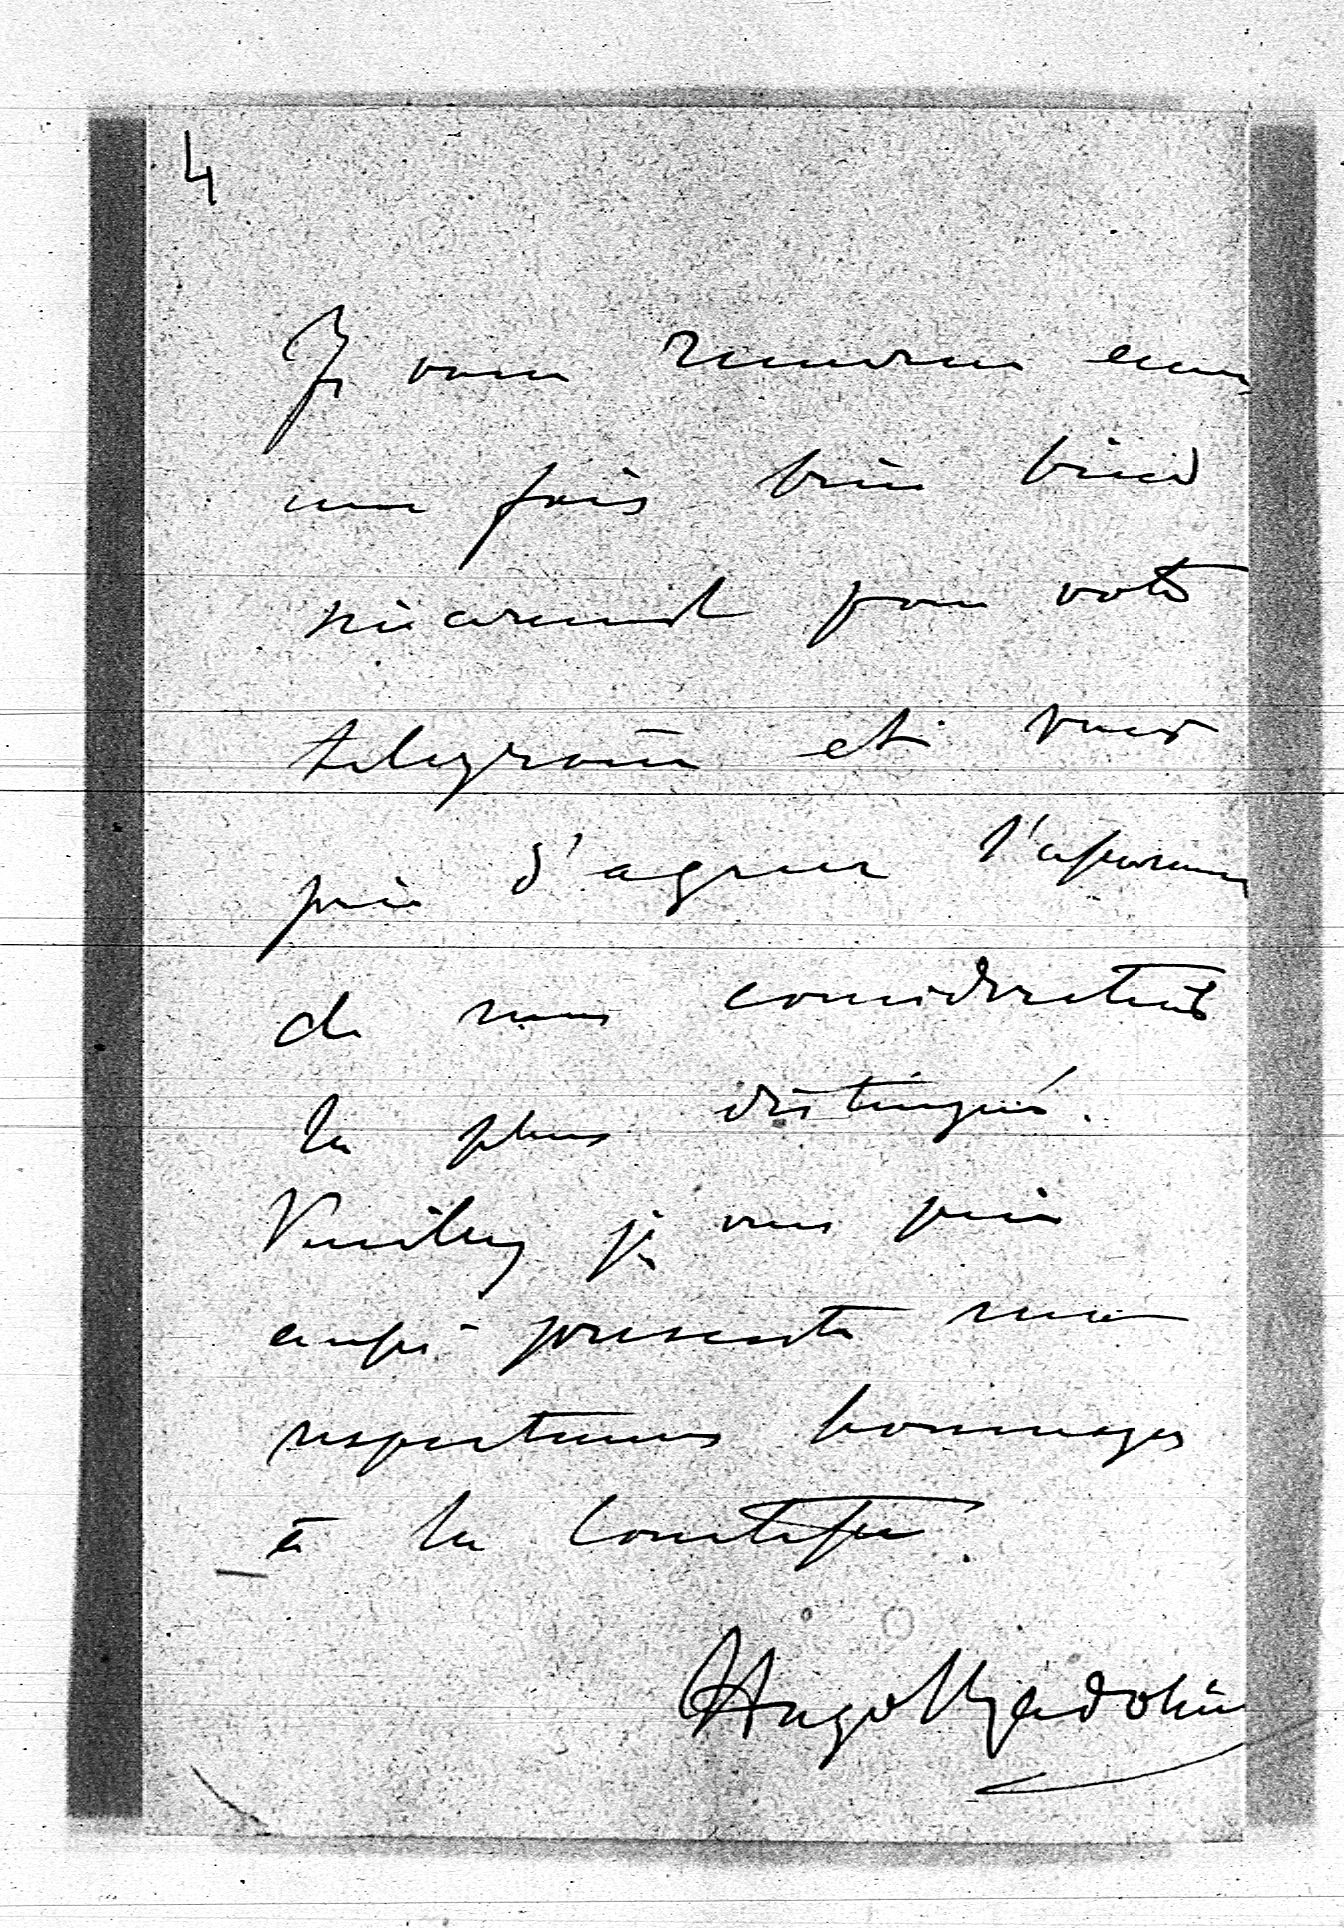 4
Je vous remercie encore
une fois bien bien
sincerement pour votre
telegramme et vous
prie d'agreer l'assurance
de mes considerations
les plus distingués.
Veuillez je vous prie
aussi presenter mes
respectueux hommages
à la Comtesse.
Hugo